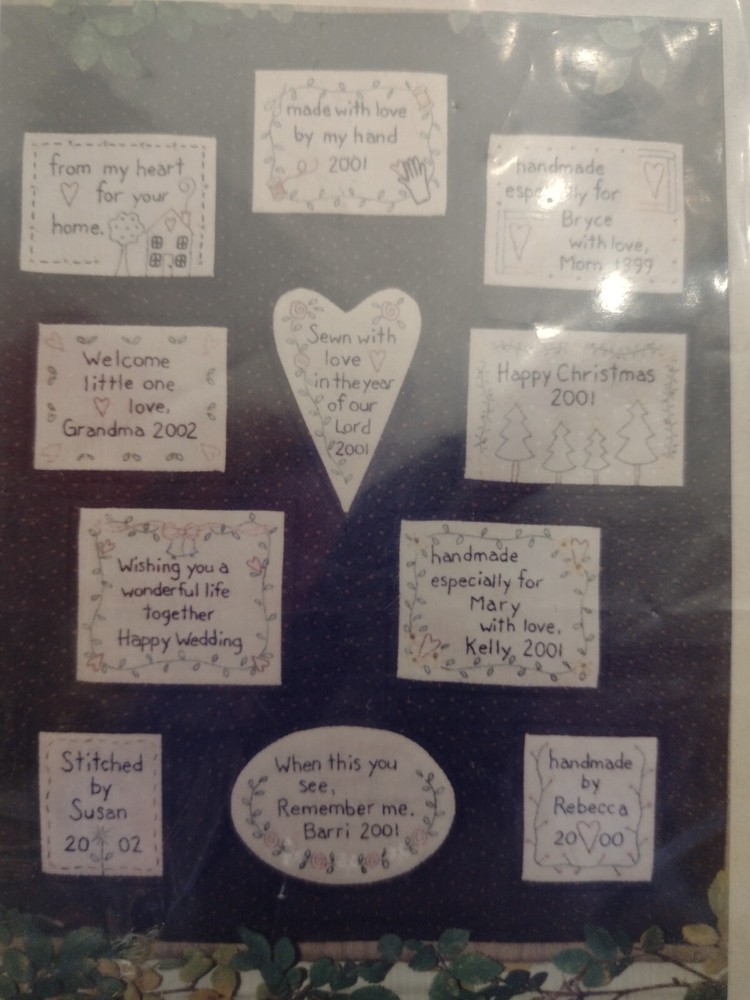 made with love
by my hand
2001
from my heart
for your
home.
handmade
especially for
Bryce
with love,
Mom 1999
Welcome
little one
love,
Grandma 2002
Sewn with
love
in the year
of our
Lord
2001
Happy Christmas
2001
Wishing you a
wonderful life
together
Happy Wedding
handmade
especially for
Mary
with love,
Kelly, 2001
Stitched
by
Susan
20 02
When this you
see,
Remember me.
Barri 2001
handmade
by
Rebecca
20 00